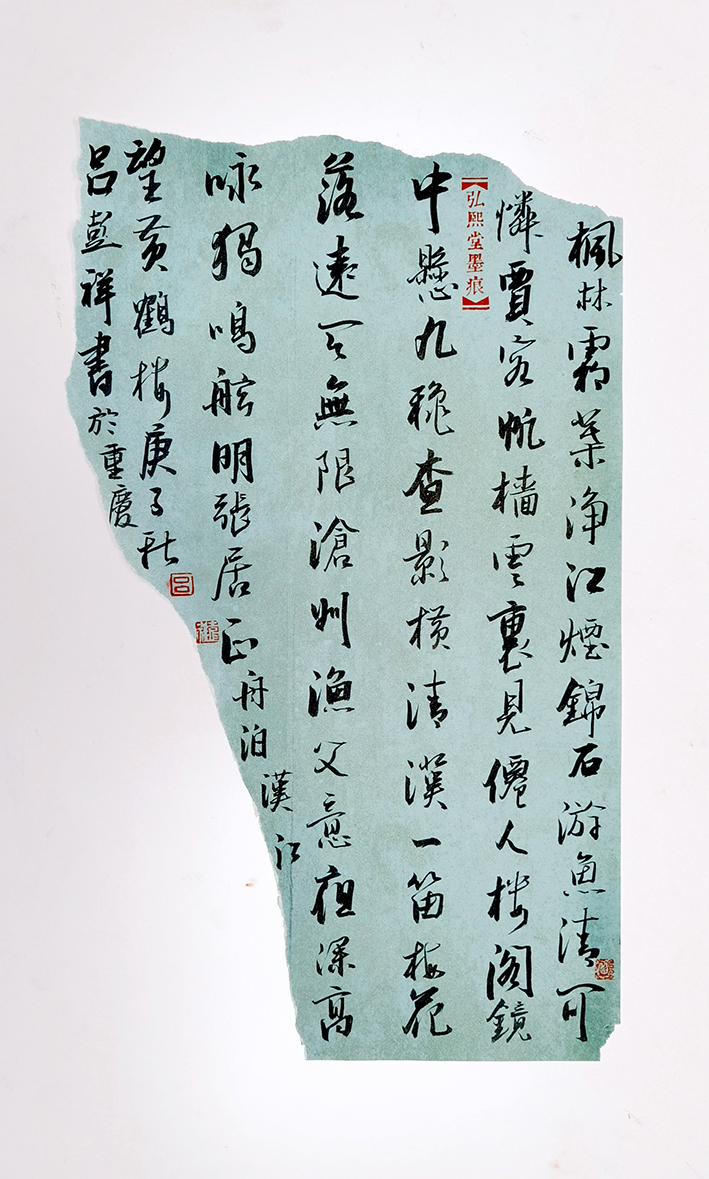 楓林霜葉浄江煙錦石游魚清可
憐賈客帆檣雲裏見僊人樓阁鏡
弘熙堂墨痕
中懸九穐查影横清漢一笛梅花
落遠天無限滄州漁父意夜深高
咏獨鳴舷明張居正舟泊漢江
望黄鶴樓庚子秋
吕彭祥書於重慶
吕